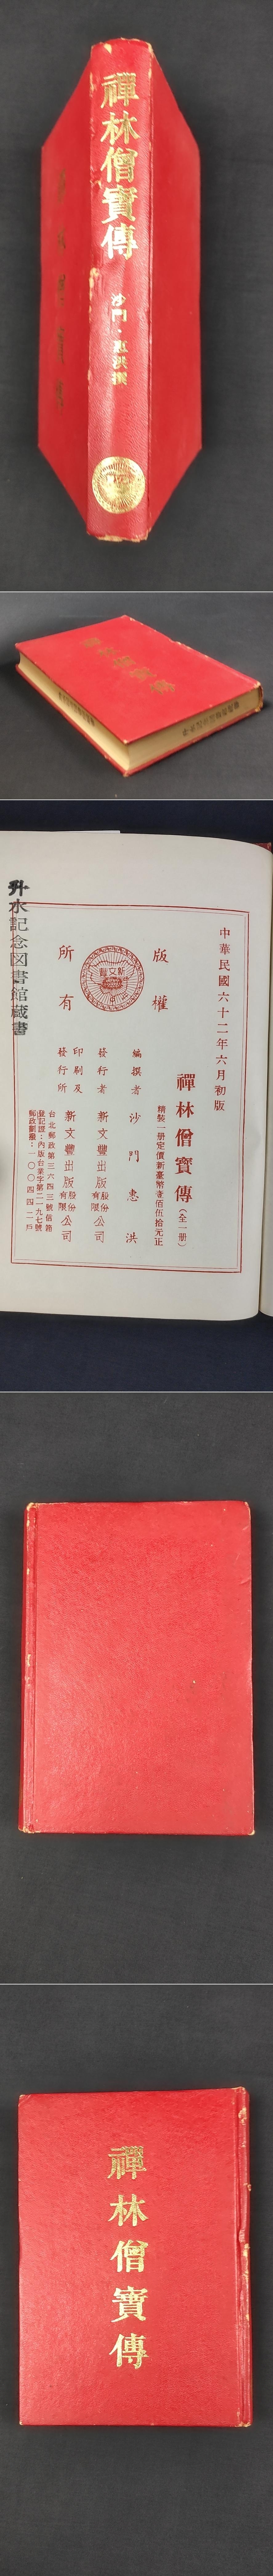 禪林僧寶傳
沙門・惠洪撰
中華民國六十二年六月初版
禪林僧寶傳(全一册)
精裝一册定價新臺幣壹佰伍拾元正
版權
所有
新文豐
編撰者 沙門 惠洪
發行者 新文豐出版股份有限公司
印刷及發行所 新文豐出版股份有限公司
台北郵政第三六四三號信箱
登記證：內版台業字第二一九七號
升水記念図書館蔵書
禪林僧寶傳